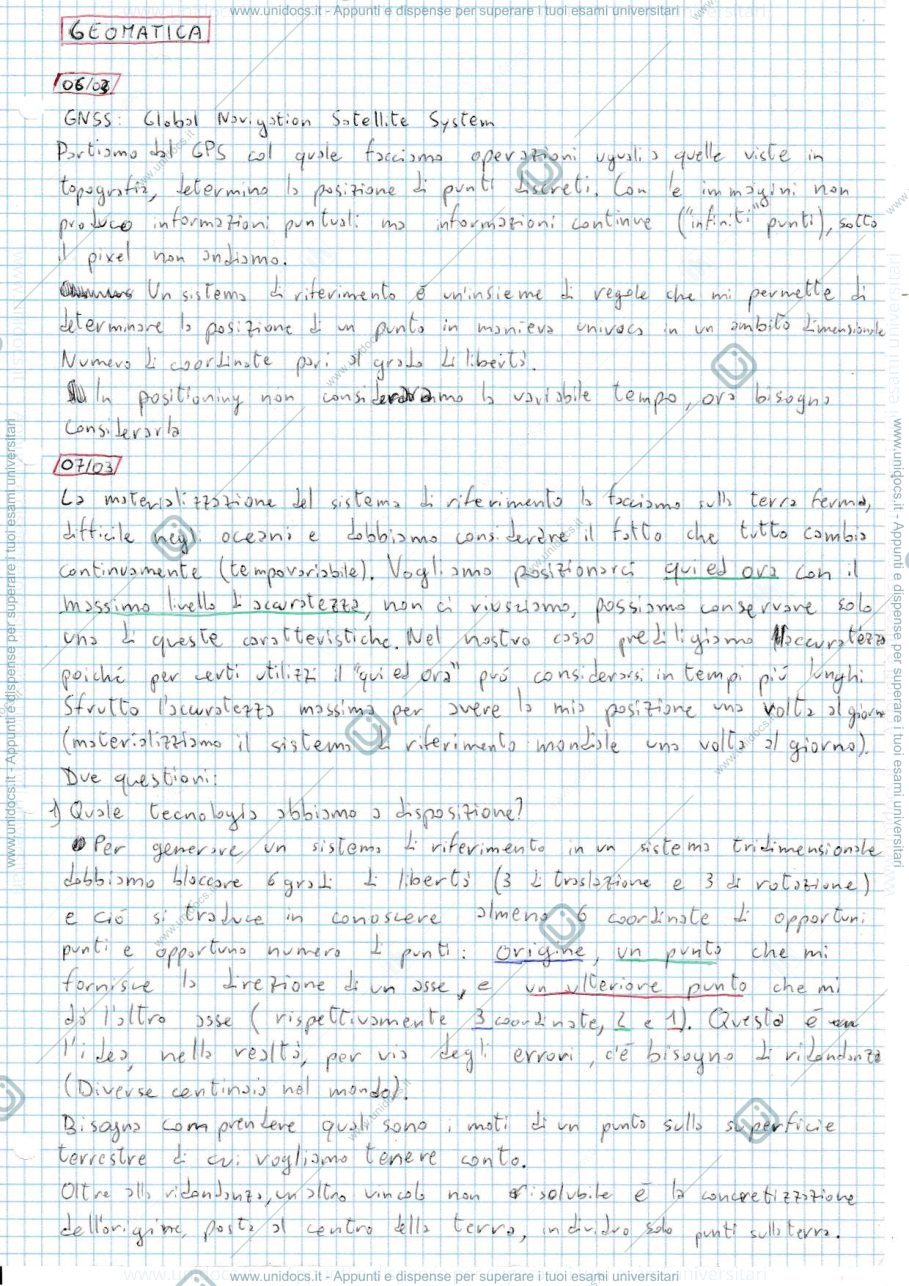 www.unidocs.it - Appunti e dispense per superare i tuoi esami universitari
GEOMATICA
06/03
GNSS: Global Navigation Satellite System
Partiamo dal GPS col quale facciamo operazioni uguali a quelle viste in
topografia, determino la posizione di punti discreti. Con le immagini non
produco informazioni puntuali ma informazioni continue ("infiniti" punti), sotto
il pixel non andiamo.
Un sistema di riferimento é un'insieme di regole che mi permette di
determinare la posizione di un punto in maniera univoca in un ambito dimensionale
Numero di coordinate pari al grado di libertà.
In positioning non consideravamo la variabile tempo, ora bisogna
Considerarla
07/03
La materializzazione del sistema di riferimento la facciamo sulla terra ferma,
difficile negli oceani e dobbiamo considerare il fatto che tutto cambia
continuamente (tempovariabile). Vogliamo posizionarci qui ed ora con il
massimo livello di accuratezza, non ci riusciamo, possiamo conservare solo
una di queste caratteristiche. Nel nostro caso prediligiamo l'accuratezza
poiché per certi utilizzi il "qui ed ora" puó considerarsi in tempi piú lunghi
Sfrutto l'accuratezza massima per avere la mia posizione una volta al giorno
(materializziamo il sistema di riferimento mondiale una volta al giorno).
Due questioni:
1) Quale tecnologia abbiamo a disposizione?
Per generare un sistema di riferimento in un sistema tridimensionale
dobbiamo bloccare 6 gradi di libertá (3 di traslazione e 3 di rotazione)
e ció si traduce in conoscere almeno 6 coordinate di opportuni
punti e opportuno numero di punti: origine, un punto che mi
fornisce la direzione di un asse, e un ulteriore punto che mi
dá l'altro asse (rispettivamente 3 coordinate, 2 e 1). Questa é
l'idea, nella realtá, per via degli errori, c'é bisogno di ridondanza
(Diverse centinaia nel mondo).
Bisogna comprendere quali sono i moti di un punto sulla superficie
terrestre di cui vogliamo tenere conto.
Oltre alla ridondanza, un altro vincolo non risolubile é la concretizzazione
dell'origine, posta al centro della terra, individuo solo punti sulla terra.
www.unidocs.it - Appunti e dispense per superare i tuoi esami universitari